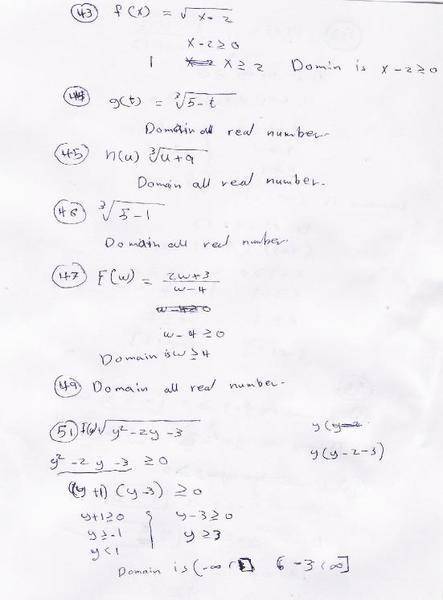 43 f(x) = √x-2
x-2≥0
x≥2 Domain is x-2≥0
44 g(t) = ∛5-t
Domain all real number.
45 h(u) ∛u+9
Domain all real number.
46 ∛5-1
Domain all real number
47 F(w) = 2w+3
w-4
w-4≥0
w-4≥0
Domain is w≥4
49 Domain all real number.
51 f(y) √y²-2y-3 y(y-2
y²-2y-3 ≥0 y(y-2-3)
(y+1) (y-3) ≥0
y+1≥0 y-3≥0
y≥-1 y≥3
y<1
Domain is